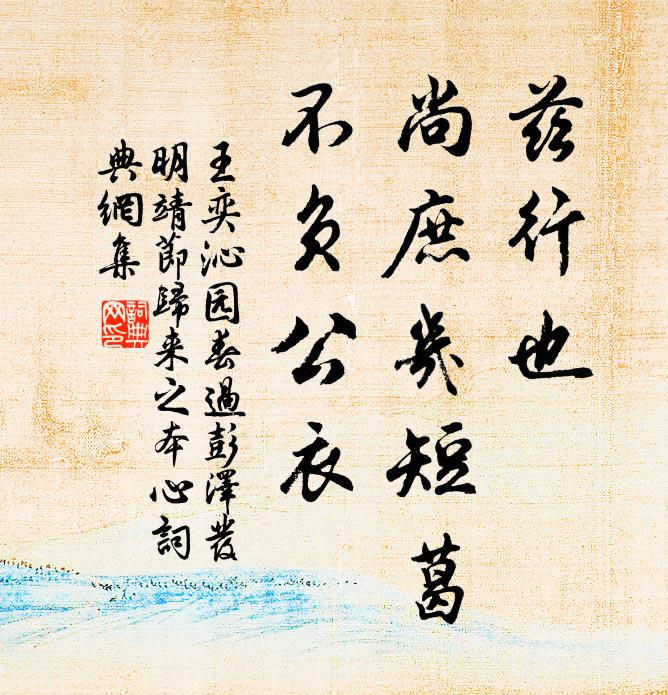 茲行也
尚庶幾短葛
不負公衣
王奕沁园春過彭澤發
明靖節歸来之本心詞
典網集
詞典
网印